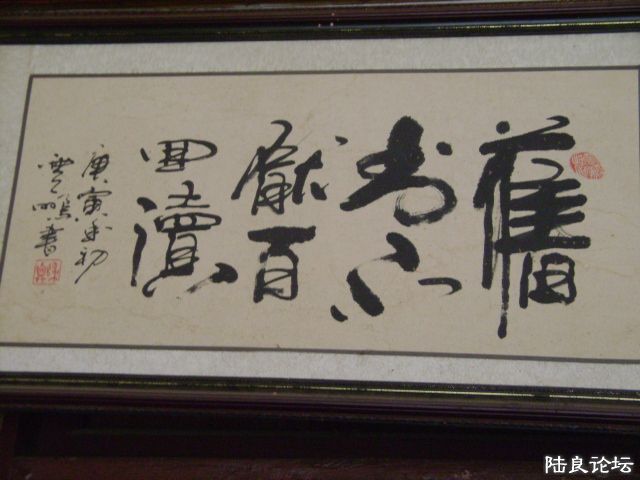 舊
书不
厭百
回讀
庚寅年初
雲鵬書
陆良论坛